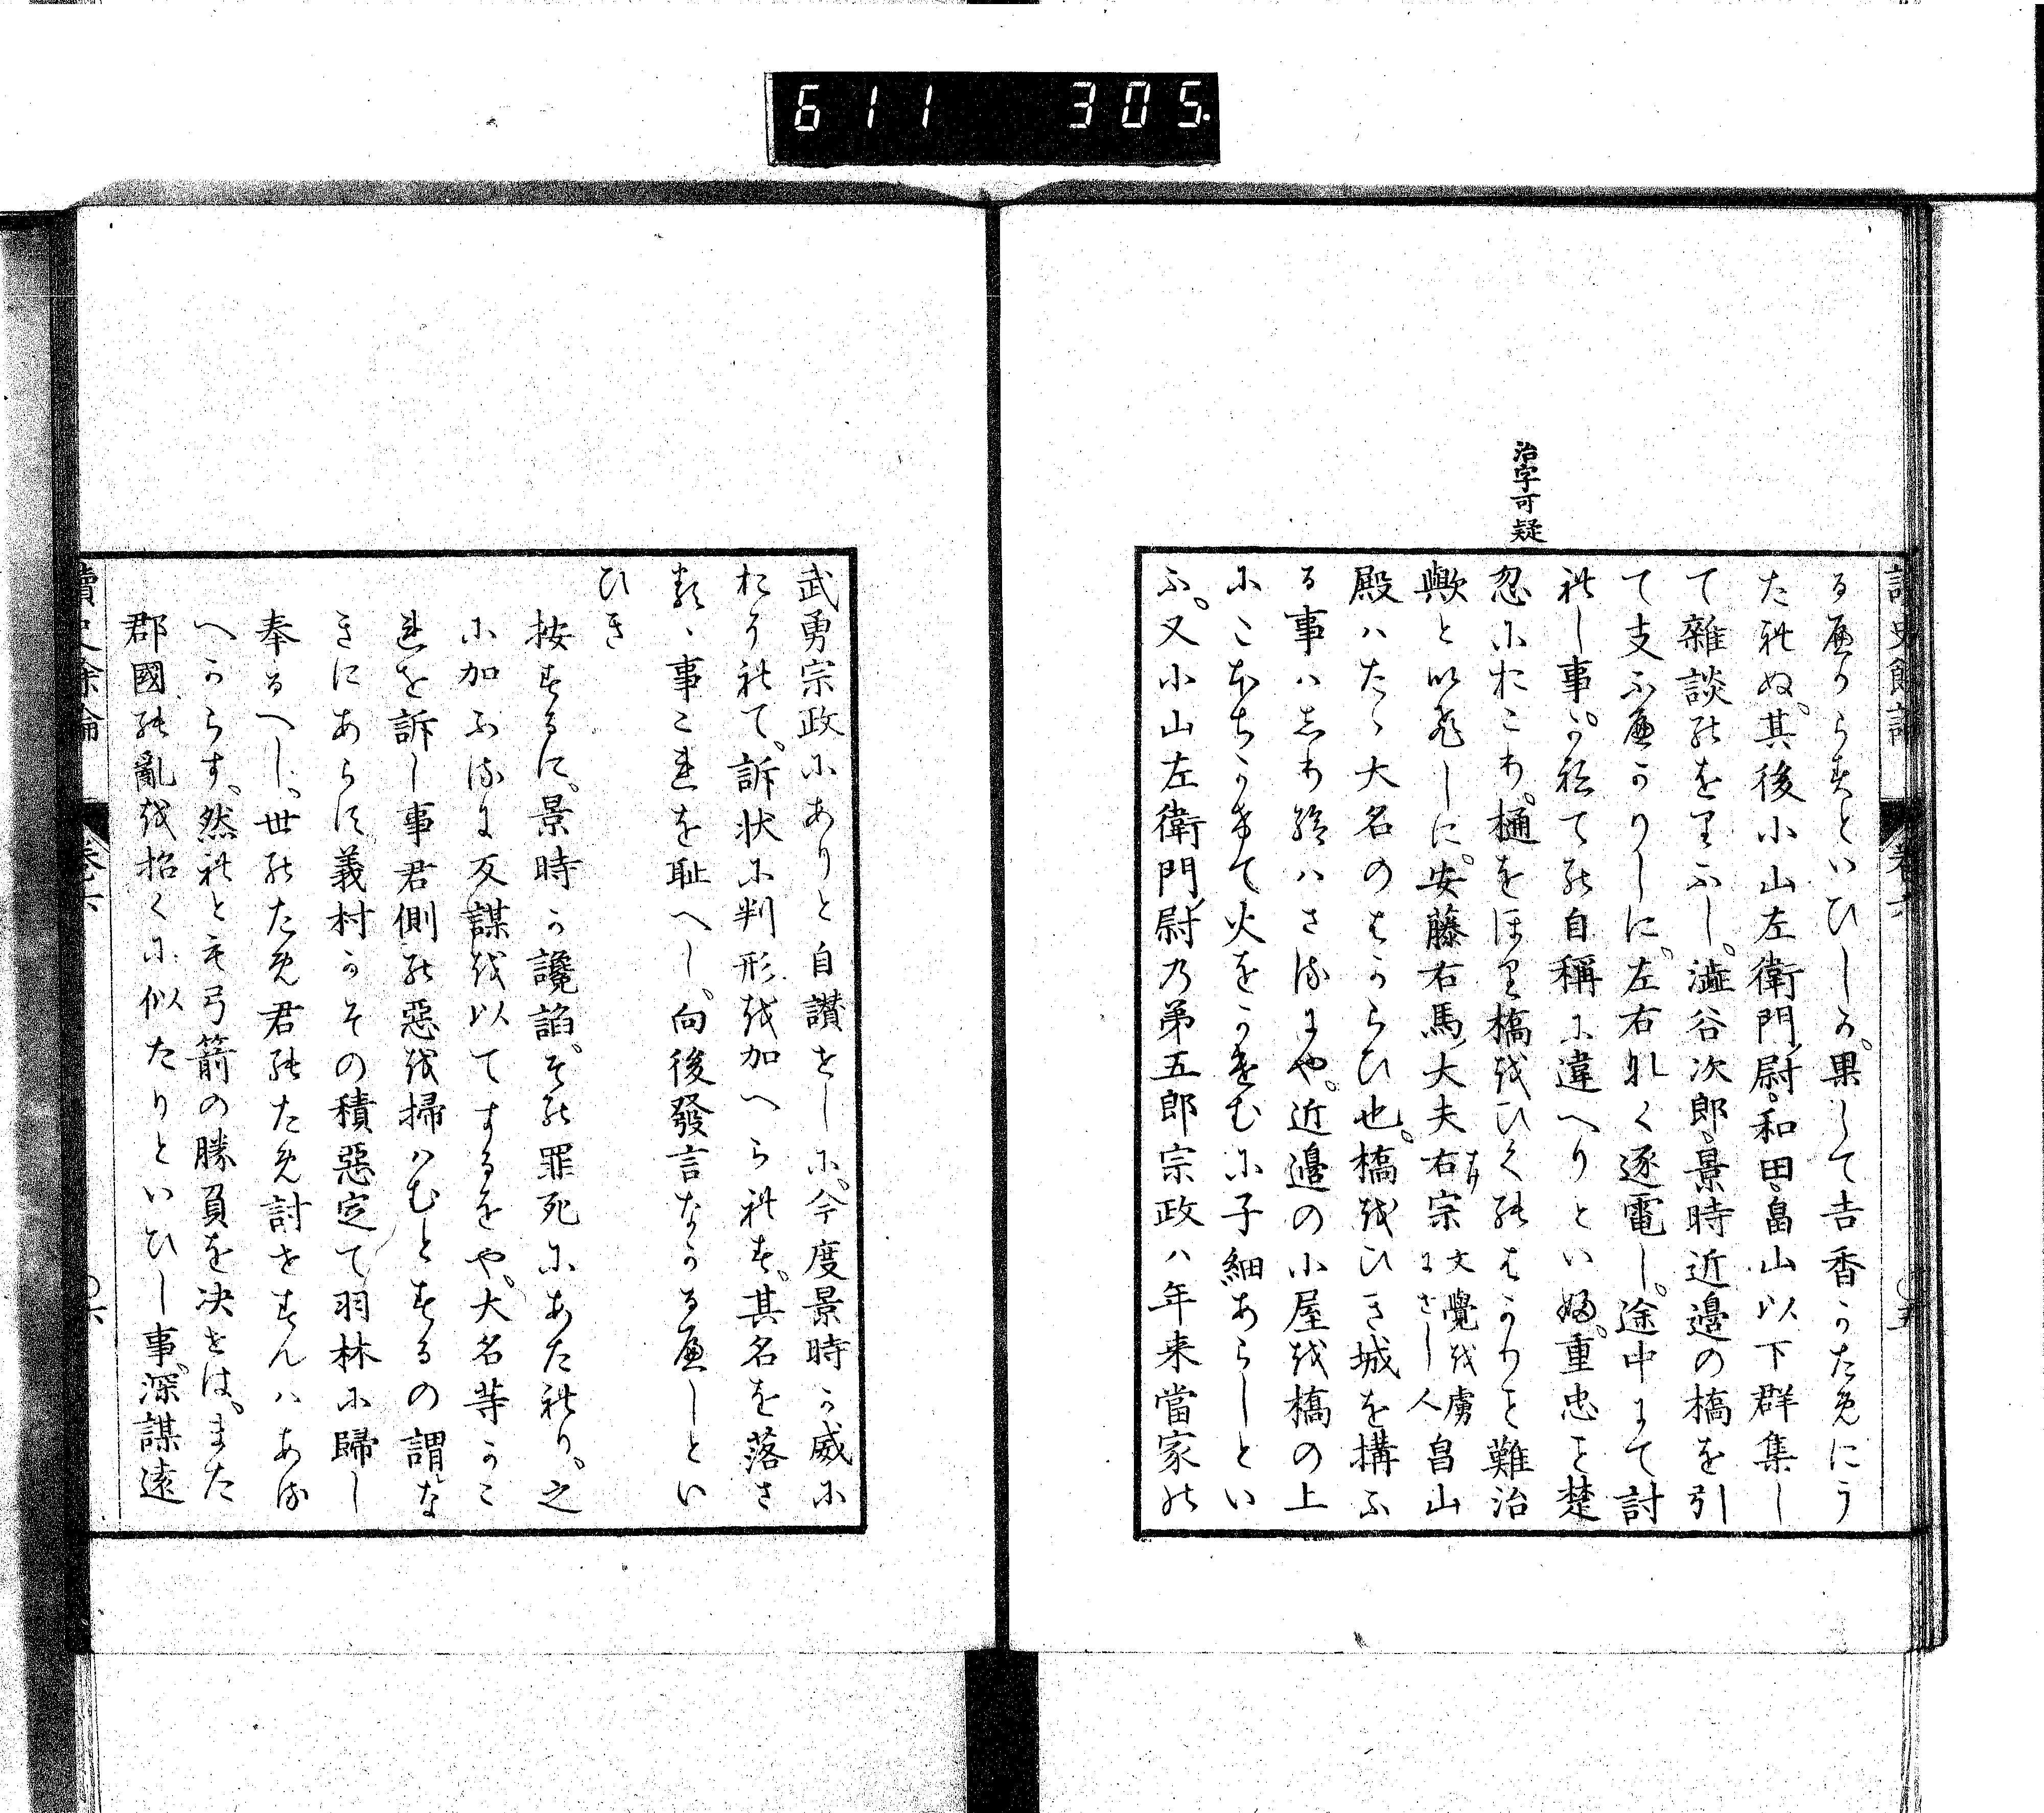 611 305.
治字可疑
讀史餘論 卷六 ○五
るへからすといひしか。果して吉香かためにう
たれぬ。其後小山左衛門ノ尉。和田。畠山以下群集し
て雜談のをりふし。澁谷次郎。景時近邊の橋を引
て支ふへかりしに。左右なく逐電し。途中にて討
れし事。かねての自稱に違へりといふ。重忠ミ楚
忽におこり。樋をほり橋をひくのはかりこと難治
歟といひしに。安藤右馬ノ大夫右宗 すけ 文覺を虜にさし人 畠山
殿ハたゝ大名のはからひ也。橋をひき城を構ふ
る事ハしり給ハさるにや。近邊の小屋を橋の上
にこほちかけて火をかけむに子細あらしとい
ふ。又小山左衛門ノ尉乃弟五郎宗政ハ年来當家の
武勇宗政にありと自讃せしに。今度景時か威に
おそれて。訴状に判形を加へられす。其名を落さ
れぬ。事これを耻へし。向後發言なかるへしとい
ひき
按するに。景時か讒諂。その罪死にあたれり。之
に加ふるに反謀を以てするをや。大名等かこ
れを訴し事君側の惡を掃ハむとするの謂れな
きにあらす義村かその積惡定て羽林に歸し
奉るへし。世のため君のため討せすんハある
へからす。然れとも弓箭の勝負を决せは。また
郡國の亂を招くに似たりといひし事。深謀遠
讀史餘論 卷六 ○六